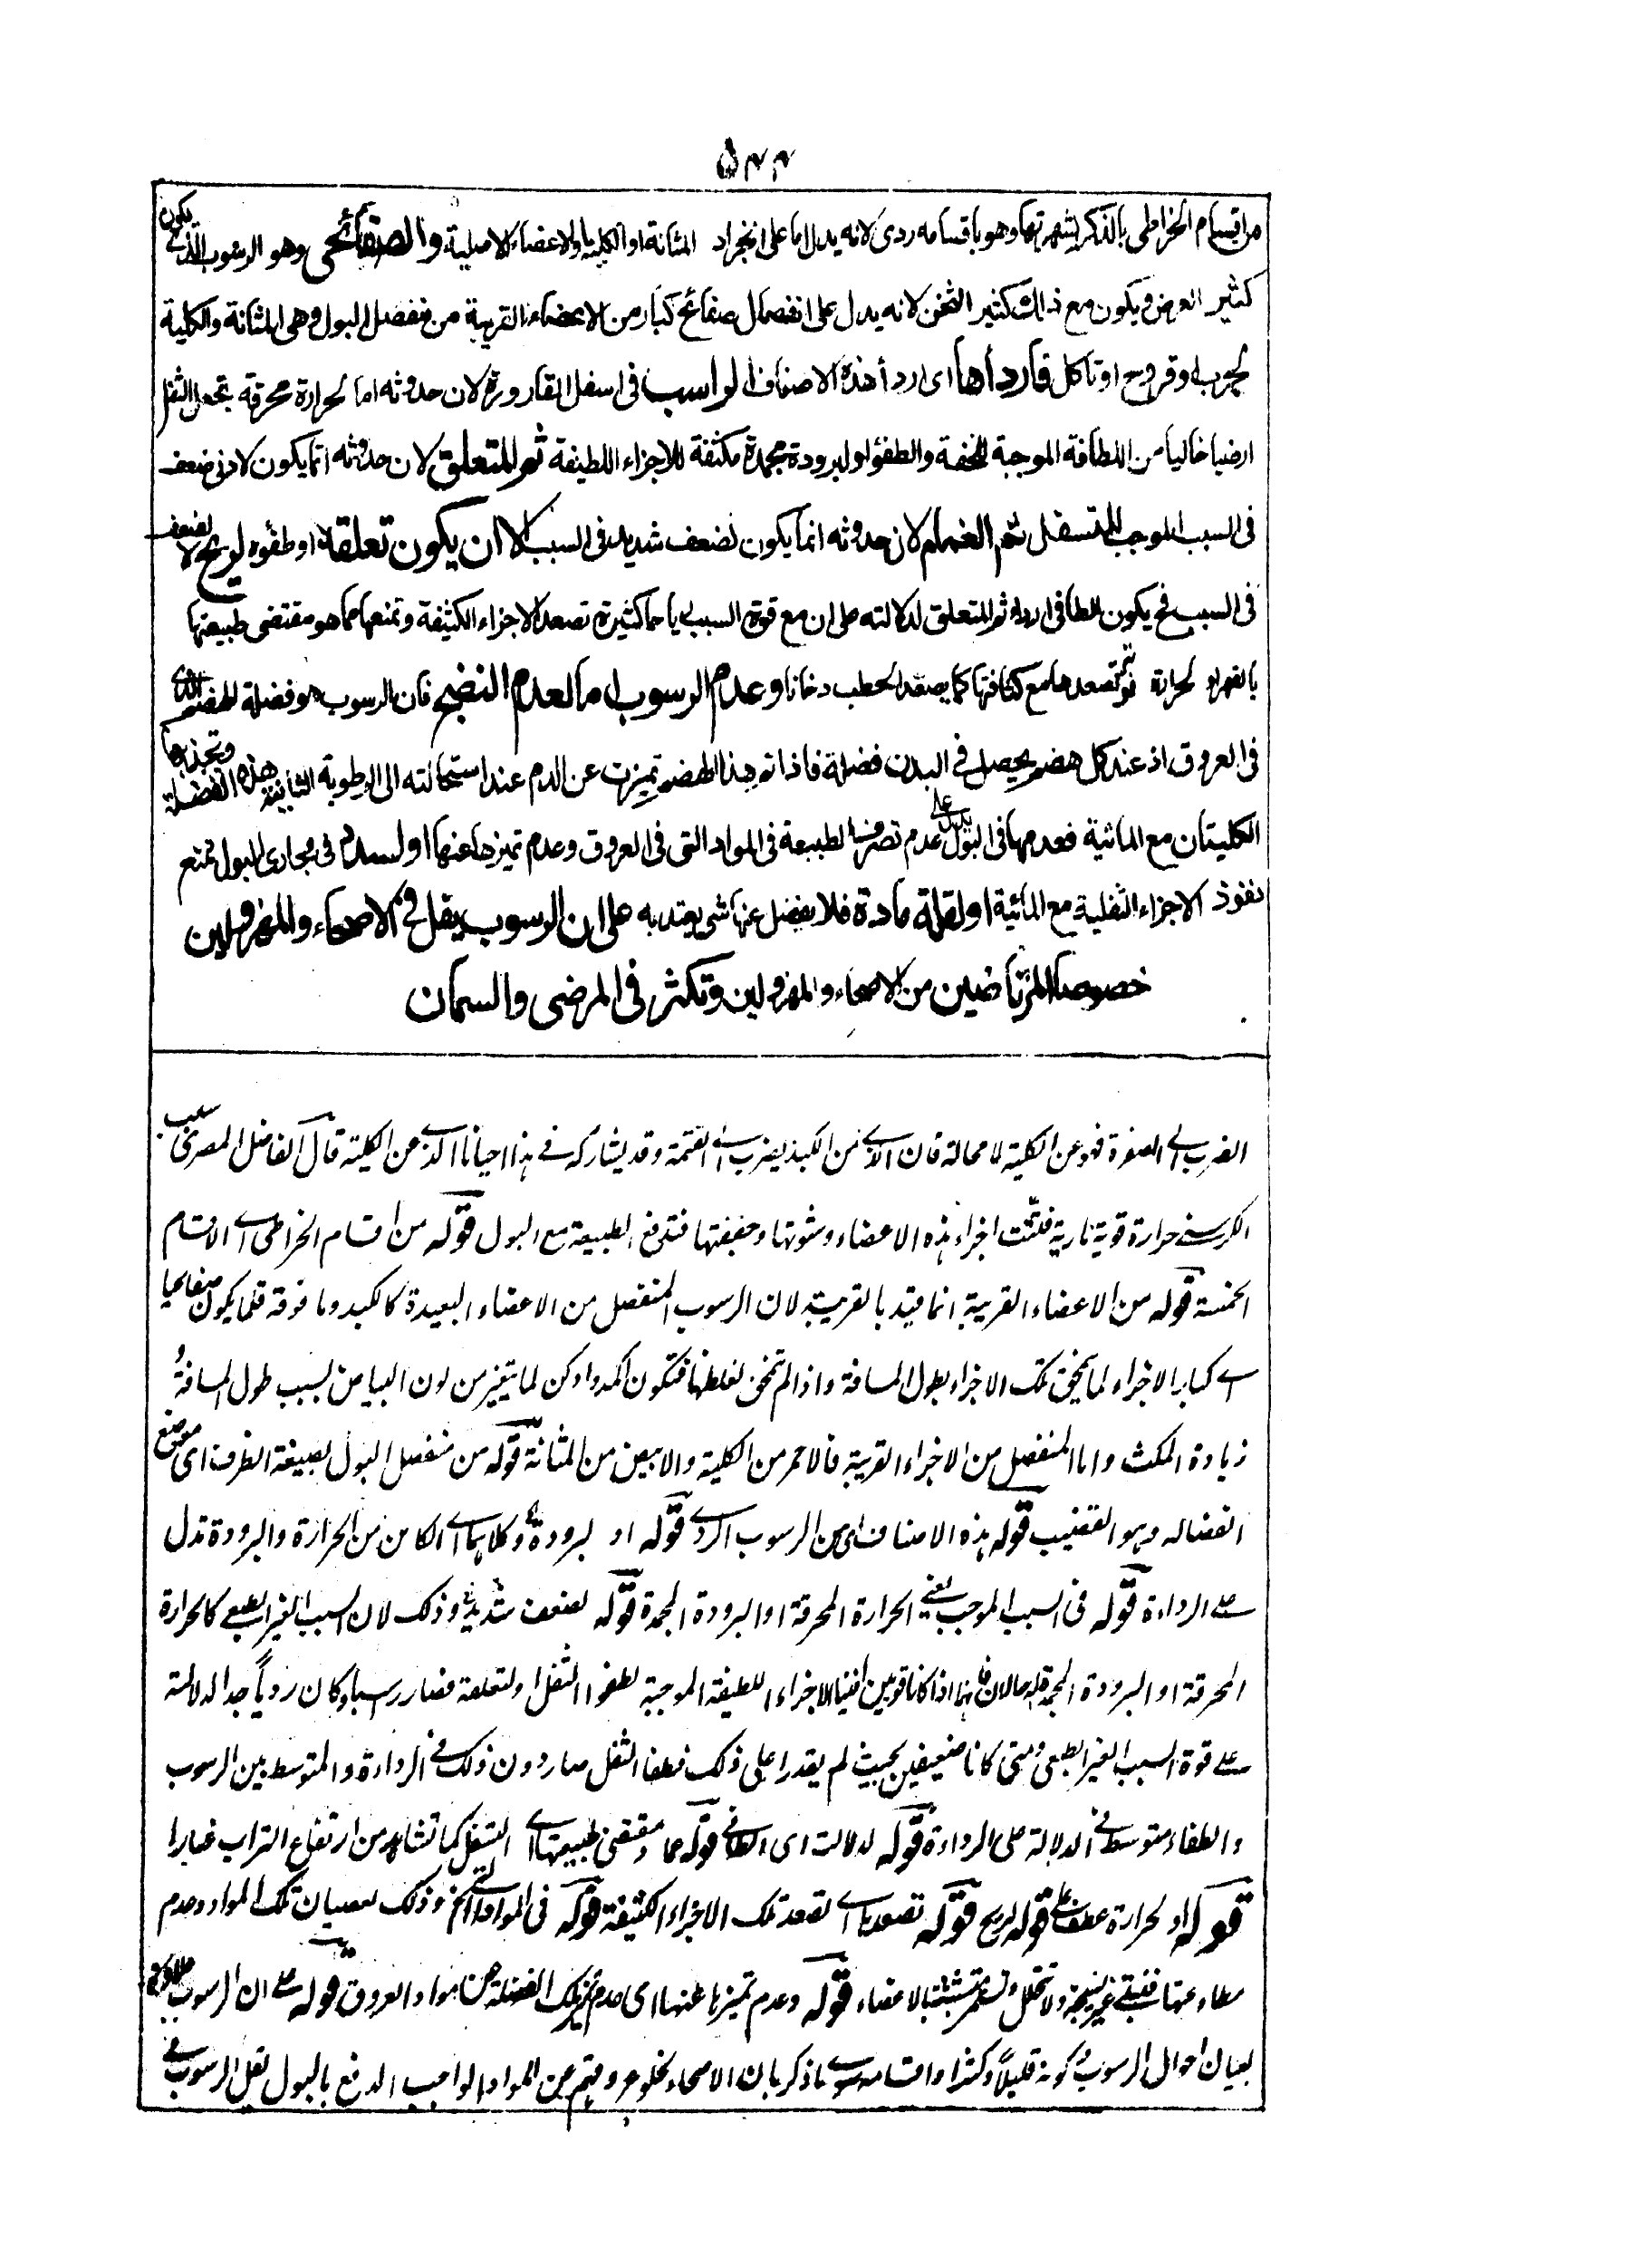 ۵۴۴
من اقسام الخراطی بالذکر لشهرتها وهو باقسامه ردی لانه یدل اما علی انجراد المثانة او الکلیة او الاعضاء الاصلیة والصفائحی وهو الرسوب الذی یکون
کثیر العرض ویکون مع ذلك کثیر الثخن لانه یدل علی انفصال صفائح کبار من الاعضاء القریبة من منفصل البول وهی المثانة والکلیة
لجرب او قروح او تاکل فاردأها ای اردأ هذه الاصناف الراسب فی اسفل القارورة لان حدوثه اما لحرارة محرقة تجعل الثفل
ارضیا خالیا من اللطافة الموجبة للخفة والطفو او لبرودة مجمدة مکثفة للاجزاء اللطیفة ثم المتعلق لان حدوثه انما یکون لادنی ضعف
فی السبب الموجب للتسفل ثم الغمام لان حدوثه انما یکون لضعف شدید فی السبب الا ان یکون تعلقه او طفوه لریح لا لضعف
فی السبب فح یکون الطافی اردأ ثم المتعلق لدلالته علی ان مع قوة السبب ریاحا کثیرة تصعد الاجزاء الکثیفة وتمنعها عما هو مقتضی طبیعتها
بالقهر او لحرارة قویة تصعدها مع کثافتها کما یصعد الحطب دخانا وعدم الرسوب اما لعدم النضج فان الرسوب هو فضلة الهضم الذی
فی العروق اذ عند کل هضم یحصل فی البدن فضلة فاذا تم هذا الهضم تمیزت عن الدم عند استحالته الی الرطوبة الثانیة هذه الفضلة وتجذبها
الکلیتان مع المائیة فعدمها فی البول یدل علی عدم تصرف الطبیعة فی المواد التی فی العروق وعدم تمیزها عنها او لسدد فی مجاری البول تمنع
نفوذ الاجزاء الثفلیة مع المائیة او لقلة مادة فلا یفضل عنها شی یعتد به علی ان الرسوب یقل فی الاصحاء والمهزولین
خصوصا المرتاضین من الاصحاء والمهزولین وتکثر فی المرضی والسمان
الضرب الی الصفرة فهو عن الکلیة لا محالة فان الآتی من الکبد یضرب الی القتمة وقد یشارکه فی هذا احیانا الذی من الکلیة قال الفاضل المصری سبب
الکرسنی حرارة قویة ناریة فتتت اجزاء هذه الاعضاء وشوتها وجففتها فتدفع الطبیعة مع البول قوله من اقسام الخراطی ای الاقسام
الخمسة قوله من الاعضاء القریبة انما قید بالقریبة لان الرسوب المنفصل من الاعضاء البعیدة کالکبد وما فوقه قلما یکون صفائحیا
ای کبار الاجزاء لما تلک الاجزاء بطول المسافة واذا لم لغلظها فتکون اکمد وادکن لما یتغیر من لون البیاض بسبب طول المسافة و
زیادة المکث واما المنفصل من الاجزاء القریبة فالاحمر من الکلیة والابیض من المثانة قوله من منفصل البول بصیغة الظرف ای موضع
انفصاله وهو القضیب قوله هذه الاصناف ای من الرسوب الردی قوله او لبرودة وکلاهما ای الکائن من الحرارة والبرودة تدل
علی الرداءة قوله فی السبب الموجب یعنی الحرارة المحرقة او البرودة المجمدة قوله لضعف شدید وذلک لان السبب الغیر الطبیعی کالحرارة
المحرقة او البرودة المجمدة له حالان فانهما اذا کانا قویین افنیا الاجزاء اللطیفة الموجبة لطفو الثفل او لتعلقه فصار رسبا وکان ردیا جدا لدلالته
علی قوة السبب الغیر الطبعی ومتی کانا ضعیفین بحیث لم یقدرا علی ذلک فطفا الثفل صار دون ذلک فی الرداءة والمتوسط بین الرسوب
والطفاء متوسط فی الدلالة علی الرداءة قوله لدلالته ای الطافی قوله عما هو مقتضی طبیعتها ای التسفل کما تشاهد من ارتفاع التراب غبارا
قوله او لحرارة عطف علی قوله لریح قوله تصعدها ای تصعد تلک الاجزاء الکثیفة قوله فی المواد التی الخ وذلک لعصیان تلک المواد وعدم
عنها فتبقی غیر نضیجة ولا تتحلل وتستمر متشبثة بالاعضاء قوله وعدم تمیزها عنها ای عدم تمیز تلک الفضلة من مواد العروق قوله علی ان الرسوب
لبیان احوال الرسوب فی کونه قلیلا وکثیرا واقسامه سوی ما ذکر بان الاصحاء لخلو عروقهم عن المواد الواجب الدفع بالبول یقل الرسوب فی